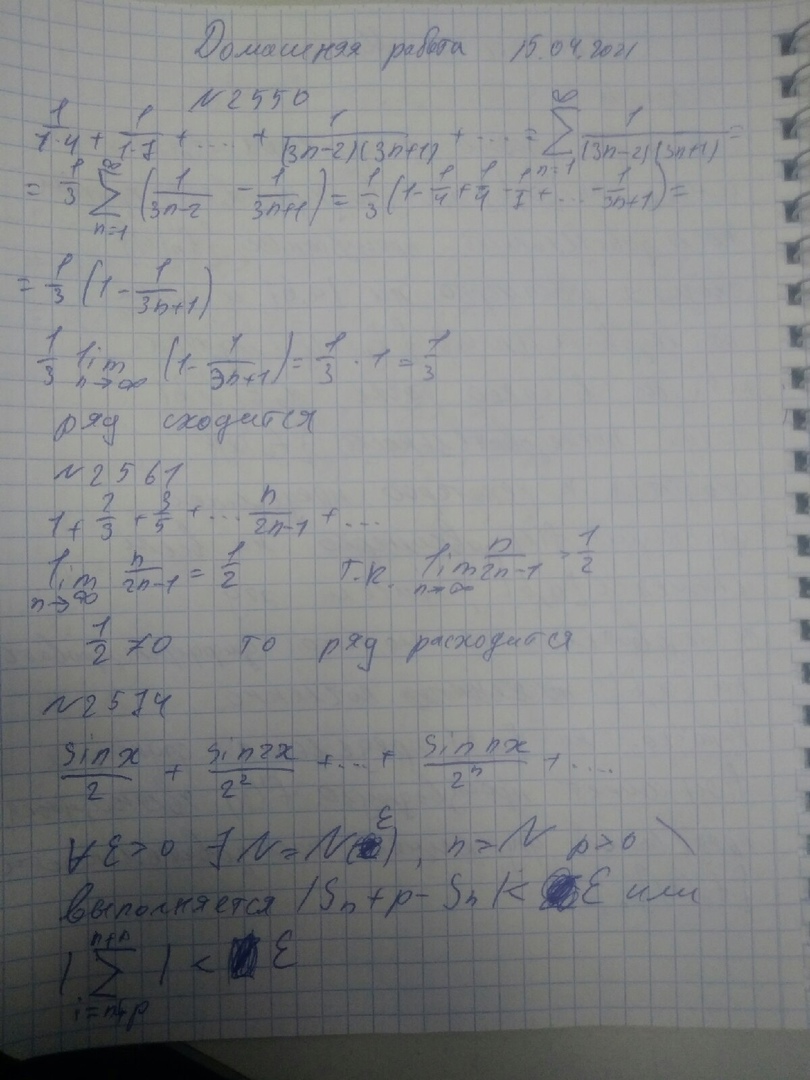 Домашняя работа 15.04.2021
№2550
1/(1·4) + 1/(1·7) + ... + 1/((3n-2)(3n+1)) + ... = ∞∑n=1 1/((3n-2)(3n+1)) =
= 1/3 ∞∑n=1 (1/(3n-2) - 1/(3n+1)) = 1/3 (1 - 1/4 + 1/4 - 1/7 + ... - 1/(3n+1)) =
= 1/3 (1 - 1/(3n+1))
1/3 lim n→∞ (1 - 1/(3n+1)) = 1/3 · 1 = 1/3
ряд сходится
№2561
1 + 2/3 + 3/5 + ... n/(2n-1) + ...
lim n→∞ n/(2n-1) = 1/2 т.к. lim n→∞ n/(2n-1) = 1/2
1/2 ≠ 0 то ряд расходится
№2574
sin x/2 + sin 2x/2² + ... + sin nx/2ⁿ + ...
∀ε>0 ∃N=N(ε), n=N p>0
выполняется |Sn+p - Sn| < ε или
|n+n∑i=n+p| < ε